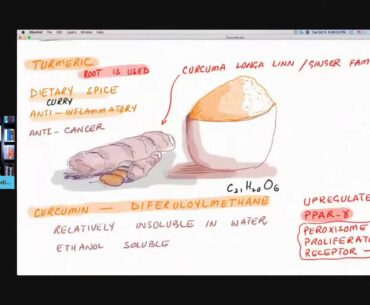 TURMERIC
ROOT IS USED
CURCUMA LONGA LINN / GINGER FAM
DIETARY SPICE
CURRY
ANTI-INFLAMMATORY
ANTI-CANCER
C21H20O6
CURCUMIN — DIFERULOYLMETHANE
RELATIVELY INSOLUBLE IN WATER
ETHANOL SOLUBLE
UPREGULATE
PPAR-γ
PEROXISOME
PROLIFERAT
RECEPTOR -